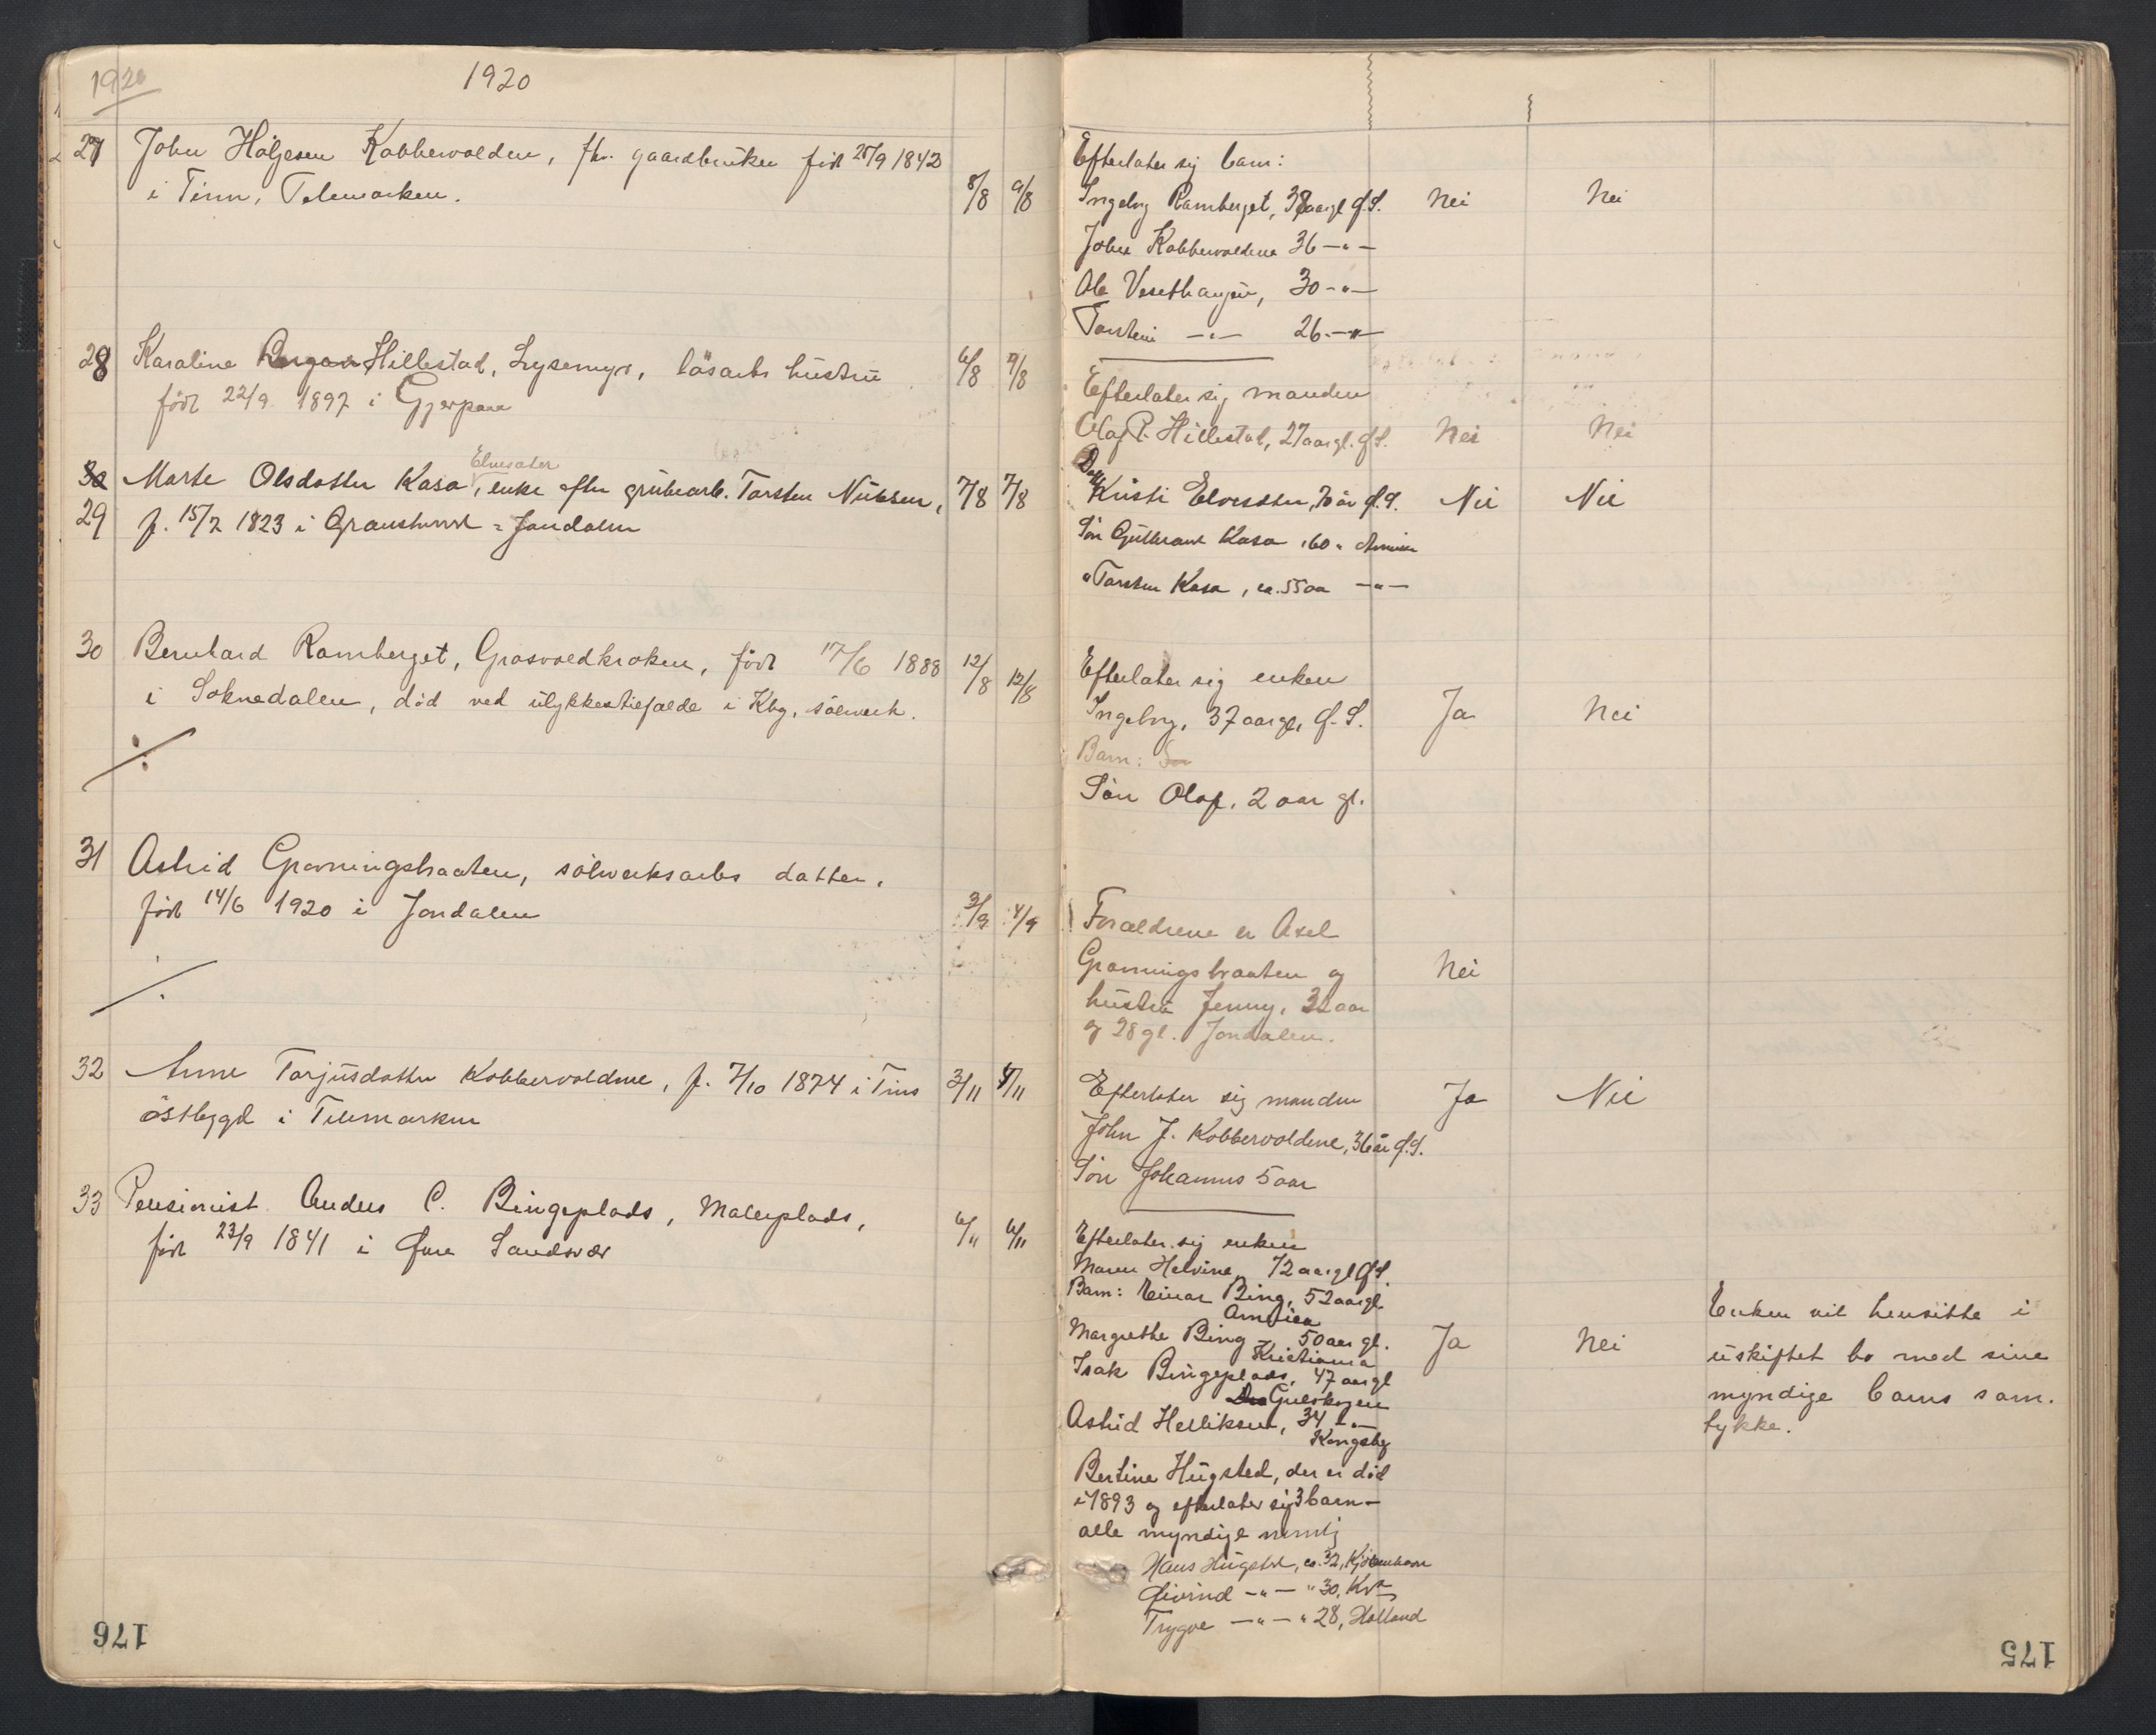 1920
1920
27 John Holjesen Kobbervolden, fhv. gaardbruker född 25/9 1842
i Tinn, Telemarken.
8/8 9/8
Efterlater sig barn:
Ingebrg Ramberget, 38 aargl Ö.S. Nei Nei
John Kobbervoldene 36 —"—
Ole Veset 30 —"—
Torstein —"— 26 —"—
28 Karoline Hillestad, Lysemyr, lösarb. hustru
född 22/9 1897 i Gjerpen
6/8 9/8
Efterlater sig manden
Olaf P. Hillestad, 27 aargl. Ö.S. Nei Nei
30 Marte Olsdatter Kasa, Elvesæter enke efter grubearb. Torsten Nubsen,
29 f. 15/2 1823 i Jondalen
7/8 7/8
Datt Kristi Elvesæter, 70 år Ö.S. Nei Nei
Sön Gulbrand Kasa, 60 "
" Torsten Kasa, ca. 55 aa —"—
30 Bernhard Ramberget, Grosvoldkroken, född 17/6 1888
i Soknedalen, död ved ulykkestilfælde i Kbg. sölverk.
12/8 12/8
Efterlater sig enken
Ingebrg, 37 aargl, Ö.S. Ja Nei
Barn:
Sön Olaf, 2 aar gl.
31 Astrid Grønningsbraaten, sölverksarbs datter,
född 14/6 1920 i Jondalen
3/9 4/9
Forældrene er Axel
Grønningsbraaten og Nei
hustru Jenny, 32 aar
og 28 gl. Jondalen.
32 Anne Torjusdatter Kobbervoldene, f. 7/10 1874 i Tins
östbygd i Telemarken
3/11 4/11
Efterlater sig manden Ja Nei
John J. Kobbervoldene, 36 år Ö.S.
Sön Johannes 5 aar
33 Pensionist Anders C. Bingeplads, Malerplads,
född 23/9 1841 i Övre Sandsvær
6/11 6/11
Efterlater sig enken
Maren Helvine, 72 aargl Ö.S.
Barn: Einar Bing, 52 aargl.
Amerika
Margrethe Bing 50 aar gl.
Kristiania
Isak Bingeplads, 47 aargl
Gulskogen
Astrid Helliksen, 34 —"—
Kongsbg
Ja Nei
Enken vil hensitte i
uskiftet bo med sine
myndige barns sam-
tykke.
Bertine Hugsted, der er död
i 1893 og efterlater sig 3 barn —
alle myndige nemlig
Hans Hugsted, ca. 32, Kjöbenhavn
Öivind —"— " 30, Kra
Trygve —"— " 28, Holland
176
175